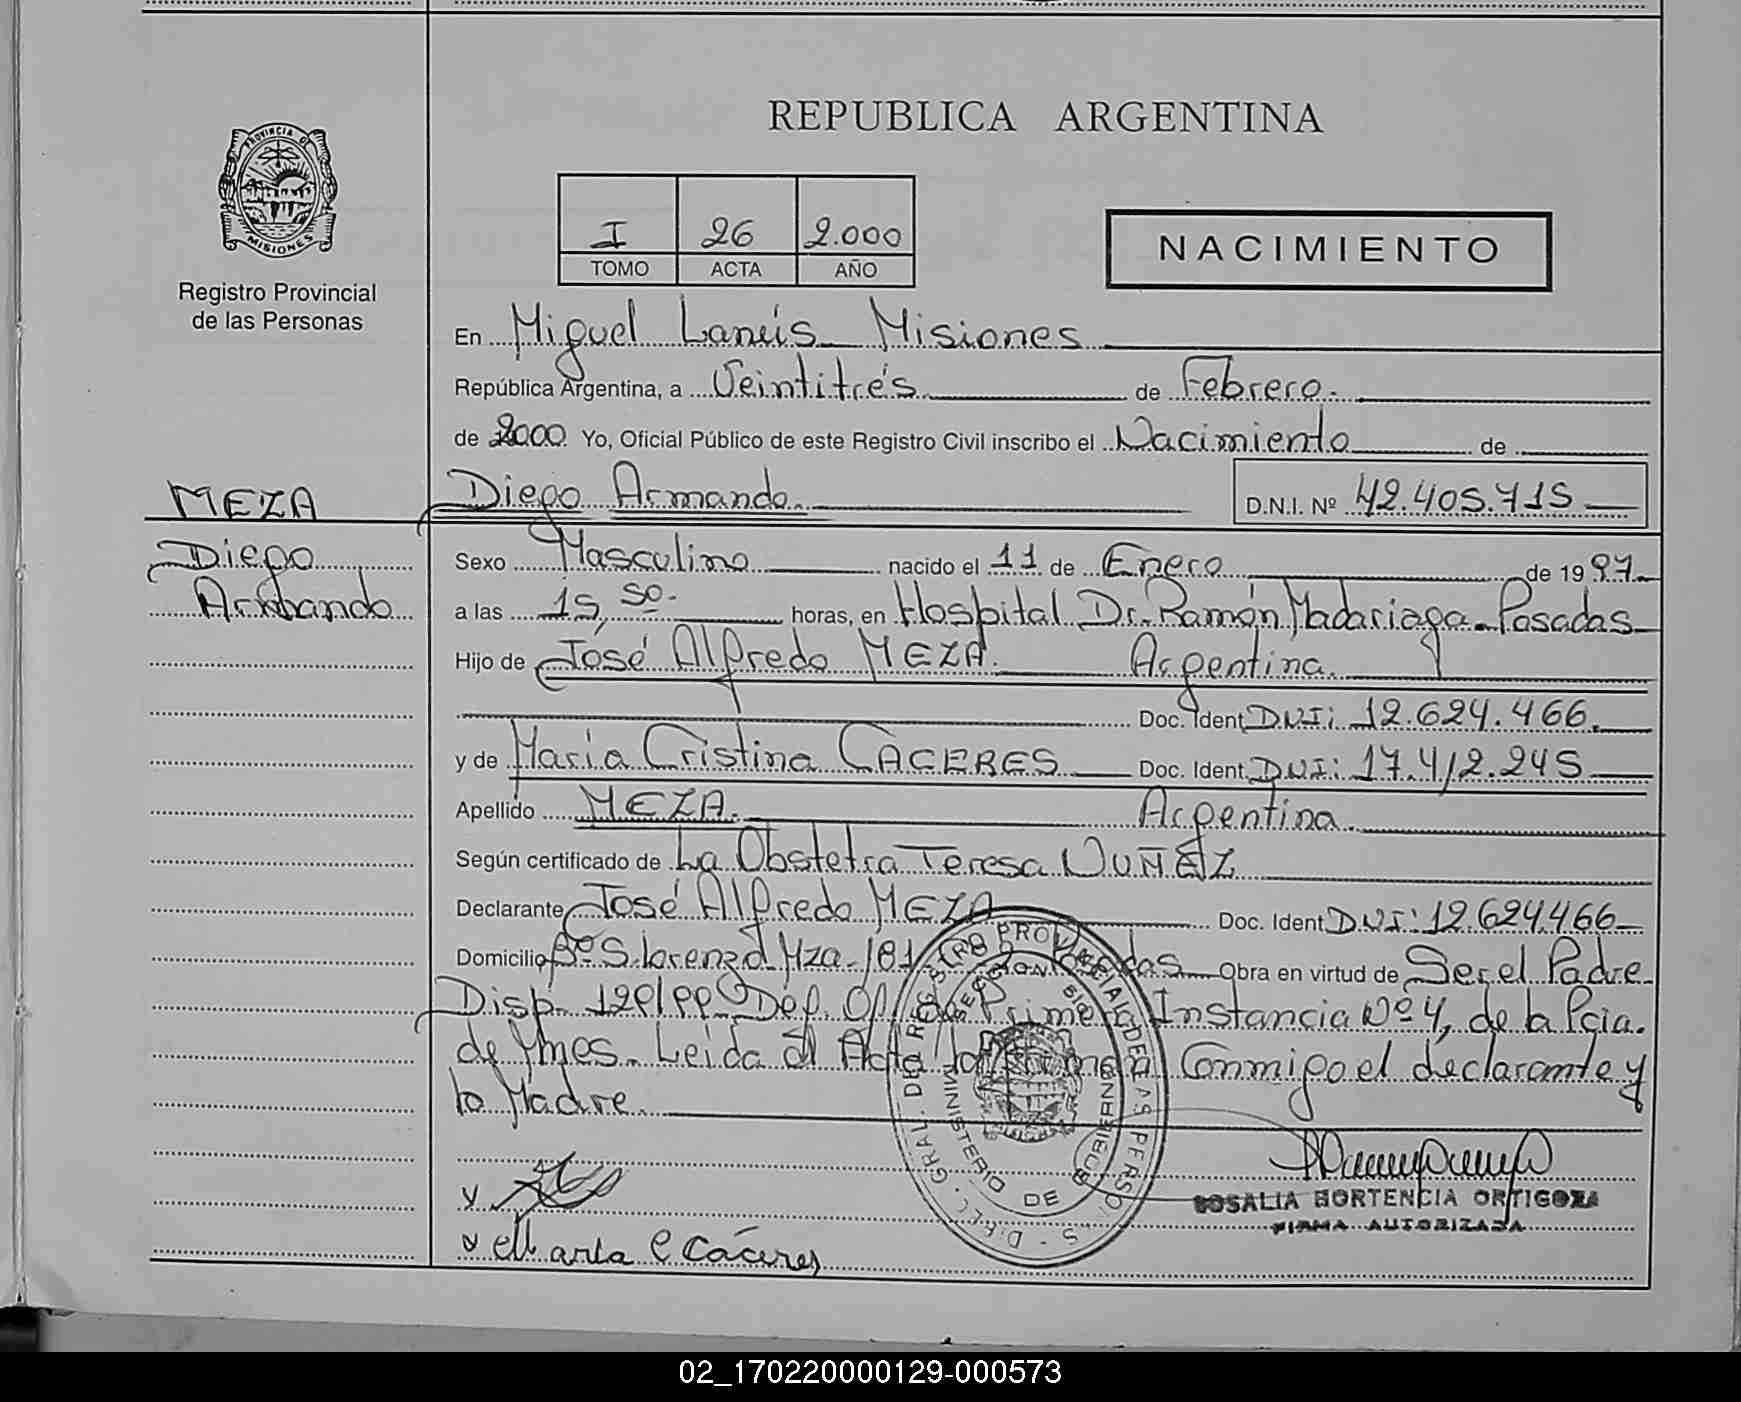 REPUBLICA ARGENTINA
PROVINCIA DE
MISIONES
Registro Provincial
de las Personas
I 26 2.000
TOMO ACTA AÑO
NACIMIENTO
En Miguel Lanús Misiones
República Argentina, a Veintitrés de Febrero.
de 2000. Yo, Oficial Público de este Registro Civil inscribo el Nacimiento de
MEZA
Diego Armando.
D.N.I. Nº 42.405.715
Diego
Armando
Sexo Masculino nacido el 11 de Enero de 1997.
a las 15,50. horas, en Hospital Dr. Ramón Madariaga. Posadas
Hijo de José Alfredo MEZA. Argentina.
Doc. Ident. DNI: 12.624.466.
y de María Cristina CACERES Doc. Ident. DNI: 17.412.245
Apellido MEZA. Argentina.
Según certificado de La Obstetra Teresa NUÑEZ
Declarante José Alfredo MEZA Doc. Ident. DNI: 12.624.466
Domicilio Bº S. Lorenzo Mza. 181 Obra en virtud de Ser el Padre
Disp. Def. Of. de Primera Instancia Nº 4, de la Pcia.
de Mnes. Leída el Acta la Conmigo el declarante y
la Madre.
REGISTRO PROVINCIAL DE LAS PERSONAS
MINISTERIO DE GOBIERNO
ROSALIA HORTENCIA ORTIGOZA
FIRMA AUTORIZADA
Maria C Cáceres
02_170220000129-000573